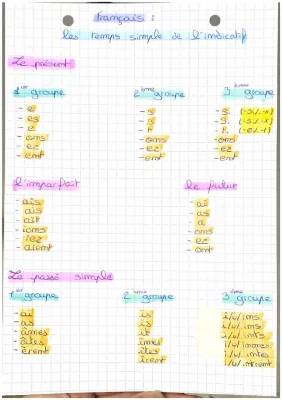 français :
les temps simple de l'indicatif
Le présent
1er groupe
- e
- es
- e
- ons
- ez
- ent
2ème groupe
- s
- s
- t
- ons
- ez
- ent
3ème groupe
- s. (-s/-x)
- s. (-s/-x)
- t. (-d/-t)
- ons
- ez
- ent
l'imparfait
- ais
- ais
- ait
- ions
- iez
- aient
Le futur
- ai
- as
- a
- ons
- ez
- ont
Le passé simple
1er groupe
- ai
- as
- a
- âmes
- âtes
- èrent
2ème groupe
- is
- is
- it
- îmes
- îtes
- irent
3ème groupe